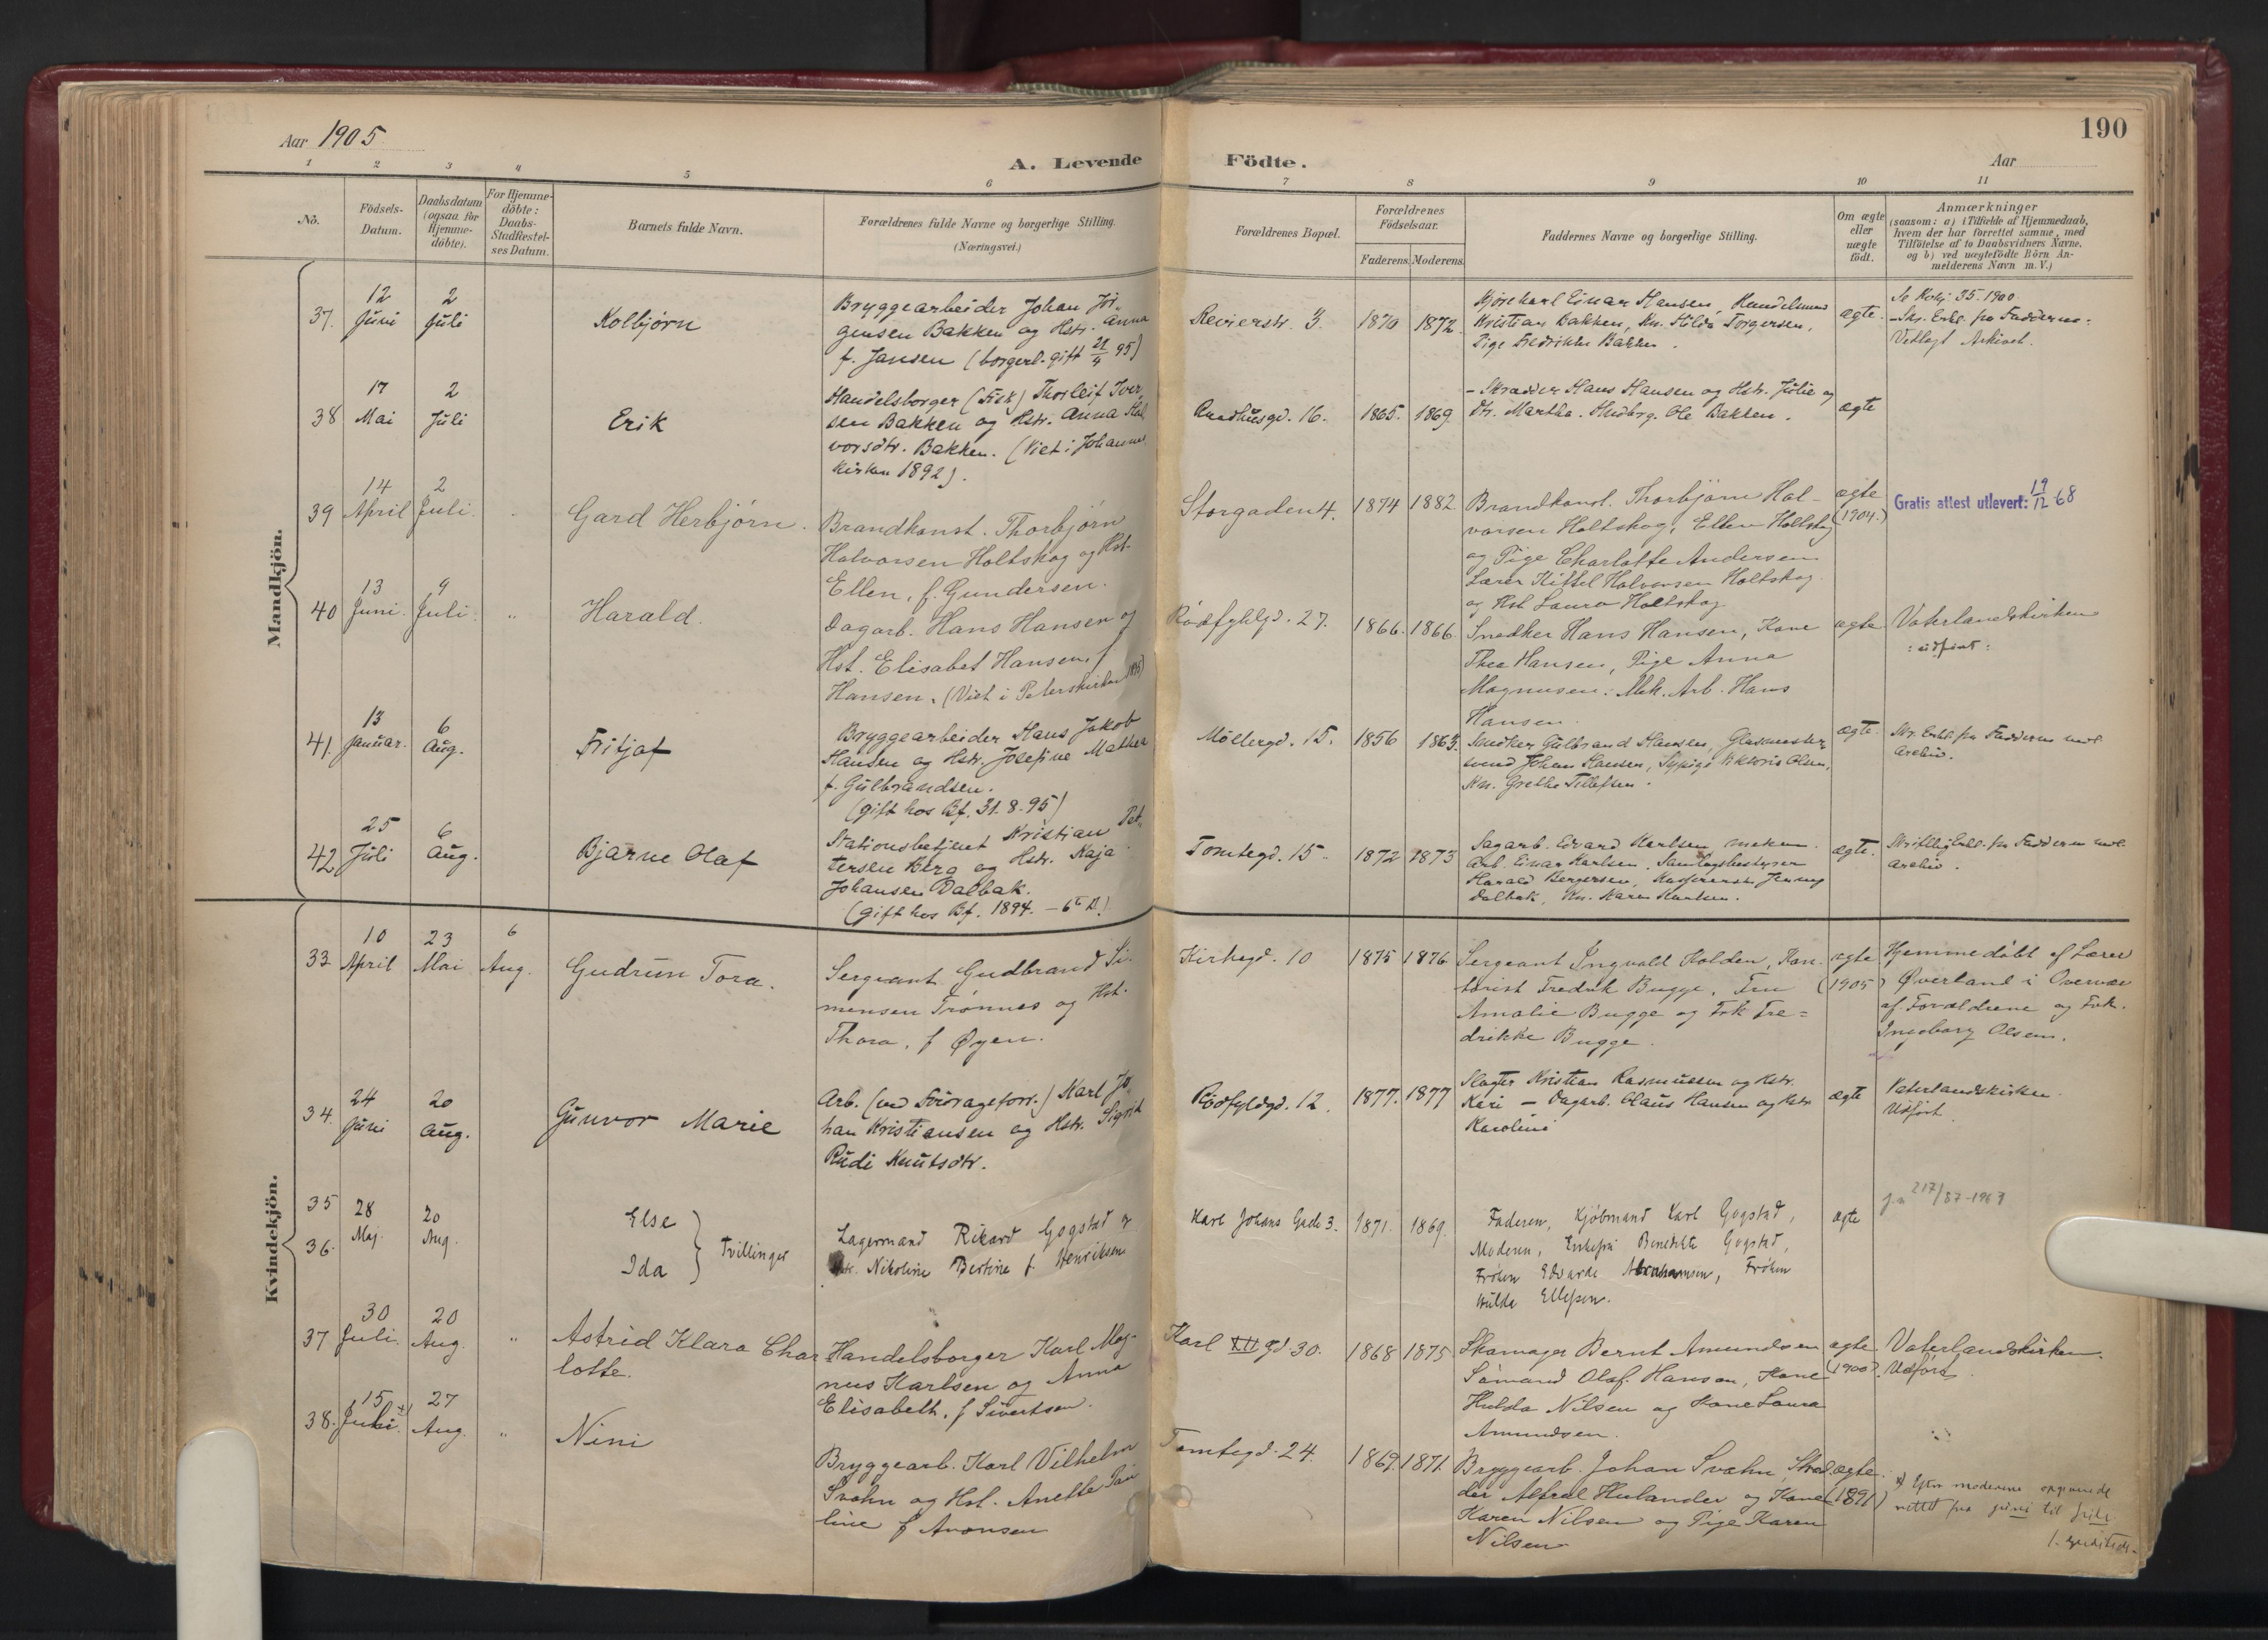 190
Aar 1905
A. Levende Födte.
Aar
1 2 3 4 5 6 7 8 9 10 11
No.
Födsels-
Datum.
Daabsdatum
(ogsaa for
Hjemme-
döbte).
For Hjemme-
döbte:
Daabs-
Stadfæstel-
ses Datum.
Barnets fulde Navn.
Forældrenes fulde Navne og borgerlige Stilling.
(Næringsvei.)
Forældrenes Bopæl.
Forældrenes
Födselsaar.
Faderens. Moderens.
Faddernes Navne og borgerlige Stilling.
Om ægte
eller
uægte
födt.
Anmærkninger
(saasom: a) i Tilfælde af Hjemmedaab,
hvem der har forrettet samme, med
Tilföielse af to Daabsvidners Navne.
og b) ved uægtefödte Börn An-
melderens Navn m. V.)
Mandkjön.
37. 12 Juni 2 Juli
Kolbjørn
Bryggearbeider Johan Jør-
gensen Bakken og Hstr. Anna
f. Jansen (borgerl. gift 21/4 95)
Revierstr. 3. 1870 1872
Kjørekarl Einar Hansen, Handelsmand
Kristian Bakken, Kn. Hilda Torgersen,
Pige Fredrikke Bakken.
ægte.
35. 1900
Skr. Erkl. fra Fadderne:
Vedlagt Arkivet.
38 17 Mai 2 Juli
Erik
Handelsborger (Fisk) Thorleif Iver-
sen Bakken og Hstr. Anna Hal-
vorsdtr. Bakken. (Viet i Johannes
kirken 1892).
Raadhusgd. 16. 1865. 1869.
- Skrædder Hans Hansen og Hstr. Julie og
Dtr. Martha. Hndborg. Ole Bakken.
ægte
39 14 April 2 Juli
Gard Herbjørn.
Brandkonst. Thorbjørn
Halvorsen Holtskog og Hst.
Ellen, f. Gundersen.
Storgaden 4. 1874 1882.
Brandkonst. Thorbjørn Hal-
vorsen Holtskog, Ellen Holtskog
og Pige Charlotte Andersen
Lærer Kittel Halvorsen Holtskog
og Hst Laura Holtskog
ægte
(1904.)
Gratis attest utlevert: 19/12 68
40 13 Juni. 9 Juli. "
Harald.
Dagarb. Hans Hansen og
Hst. Elisabet Hansen, f.
Hansen. (Viet i Peterskirken 1895)
Rødfyldgd. 27. 1866. 1866.
Snedker Hans Hansen, Kone
Thea Hansen, Pige Anna
Magnusen. Mek. Arb. Hans
Hansen.
ægte
Vaterlandskirken
: udført :
41. 13 Januar. 6 Aug.
Fritjof
Bryggearbeider Hans Jakob
Hansen og Hstr. Josefine Mathea
f. Gulbrandsen.
(gift hos Bf. 31.8.95)
Möllergd. 15. 1856 1863.
Snedker Gulbrand Hansen, Glasmester-
svend Johan Hansen, Sypige Viktoria Olsen,
Kn. Grethe Tellefsen.
ægte.
Skr. Erkl. fra Fadderne ved
Arkiv.
42. 25 Juli 6 Aug.
Bjarne Olaf
Stationsbetjent Kristian Pet-
tersen Berg og Hstr. Kaja
Johansen Dalbak.
(gift hos Bf. 1894. - 6te D.)
Tomtegd. 15. 1872 1873
Sagarb. Edvard Karlsen mekan.
Arb. Einar Karlsen. Samlagsbestyrer
Harald Bergersen, Jenny
Dalbak, Kn. Karen Karlsen.
ægte.
Skriftlig Erkl. fra Fadderne ved
Arkiv.
Kvindekjön.
33. 10 April 23 Mai 6 Aug.
Gudrun Tora.
Sergeant Gudbrand Si-
mensen Trønnes og Hst.
Thora, f Øyen.
Kirkegd. 10 1875 1876
Sergeant Ingvald Kolden, Kon-
torist Fredrik Bugge, Fru
Amalie Bugge og Frk Fre=
drikke Bugge.
ægte
(1905)
Hjemmedøbt af Lærer
Øverland i Overvær
af Forældrene og Frk.
Ingeborg Olsen.
34. 24 Juni 20 Aug.
Gunvor Marie
Arb. (ved Fourageforr.) Karl Jo-
han Kristiansen og Hstr. Sigrid
Rudi Knutsdtr.
Rödfyldgd. 12. 1877. 1877
Slagter Kristian Rasmussen og Hstr.
Kari - Dagarb. Olaus Hansen og Hstr
Karoline
ægte
Vaterlandskirken.
Udført.
35
36. 28 Maj. 20 Aug.
Else
Ida } Tvillinger
Lagermand Rikard Gogstad og
Hstr. Nikoline Bertine f. Henriksen
Karl Johans Gade 3. 1871. 1869.
Faderen, Kjöbmand Karl Gogstad,
Moderen, Enkefru Benedikte Gogstad,
Fröken Edvarda Abrahamsen, Fröken
Hulda Ellefsen.
ægte
j.n 217/87-1967
37 30 Juli. 20 Aug. "
Astrid Klara Char
lotte.
Handelsborger Karl Mag-
nus Karlsen og Anna
Elisabeth, f Sivertsen.
Karl XII gd 30. 1868 1875
Skomager Bernt Amundsen
Sømand Olaf Hansen, Kone
Hulda Nilsen og Kone Laura
Amundsen.
ægte
(1900).
Vaterlandskirken.
Udført.
38. 15 Juli x) 27 Aug. "
Nini
Bryggearb. Karl Vilhelm
Svahn og Hst. Anette Pau
line f Aronsen
Tomtegd. 24. 1869. 1871.
Bryggearb. Johan Svahn, Skræd
der Alfred Hulander og Kone
Karen Nilsen og Pige Karen
Nilsen
ægte.
(1891)
x) Efter moderens opgivende
rettet fra juni til juli.